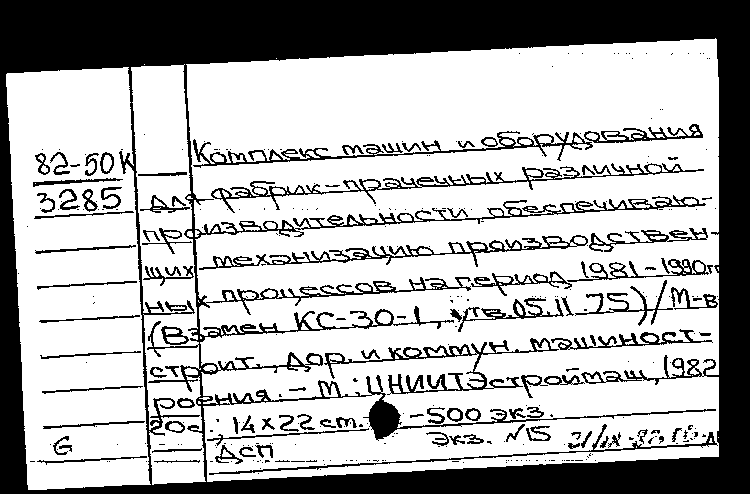 82-50К
3285
Комплекс машин и оборудования
для фабрик-прачечных различной
производительности, обеспечиваю-
щих механизацию производствен-
ных процессов на период 1981-1990гг
(Взамен КС-30-1, утв. 05.11.75)/М-в
строит., дор. и коммун. машиност-
роения. - М.: ЦНИИТЭстроймаш, 1982
20с.; 14х22 cm. -500 экз.
G
ДСП
Экз. №15